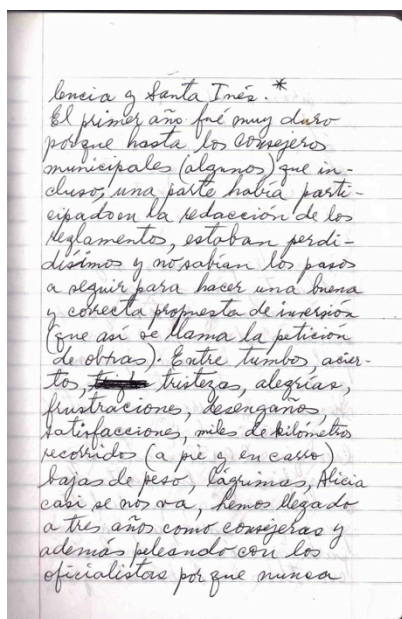 lencia y Santa Inés.*
El primer año fué muy duro
porque hasta los consejeros
municipales (algunos) que in-
cluso, una parte había parti-
cipado en la redacción de los
reglamentos, estaban perdi-
dísimos y no sabían los pasos
a seguir para hacer una buena
y correcta propuesta de inversión
(que así se llama la petición
de obras). Entre tumbos acier-
tos, tristezas, alegrías,
frustraciones, desengaños,
satisfacciones, miles de kilómetros
recorridos (a pie y en carro)
bajas de peso, lágrimas, Alicia
casi se nos va, hemos llegado
a tres años como consejeras y
además peleando con los
oficialistas porque nunca